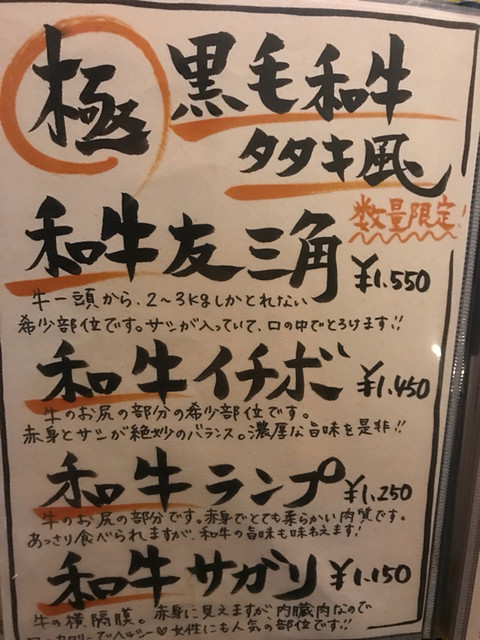 極 黒毛和牛
タタキ風
数量限定!
和牛友三角 ¥1.550
牛一頭から、2〜3kgしかとれない
希少部位です。サシが入っていて、口の中でとろけます!!
和牛イチボ ¥1.450
牛のお尻の部分の希少部位です。
赤身とサシが絶妙のバランス。濃厚な旨味を是非!!
和牛ランプ ¥1.250
牛のお尻の部分です。赤身でとても柔らかい肉質です。
あっさり食べられますが、和牛の旨味も味わえます!
和牛サガリ ¥1.150
牛の横隔膜。赤身に見えますが内臓肉なので
ローカロリーでヘルシー♡女性にも人気の部位です!!